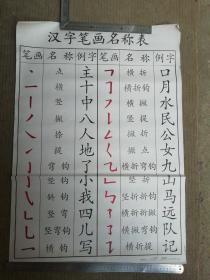 汉字笔画名称表
笔画 名称 例字 笔画 名称 例字
点 主 横折 口
横 十 横折钩 月
竖 中 横撇 水
撇 八 竖提 民
捺 人 撇折 公
提 地 撇点 女
弯钩 了 横折弯钩 九
竖钩 小 竖折 山
斜钩 我 竖折折钩 马
竖弯 四 横折折撇 远
竖弯钩 儿 横撇弯钩 队
横钩 写 横折提 记